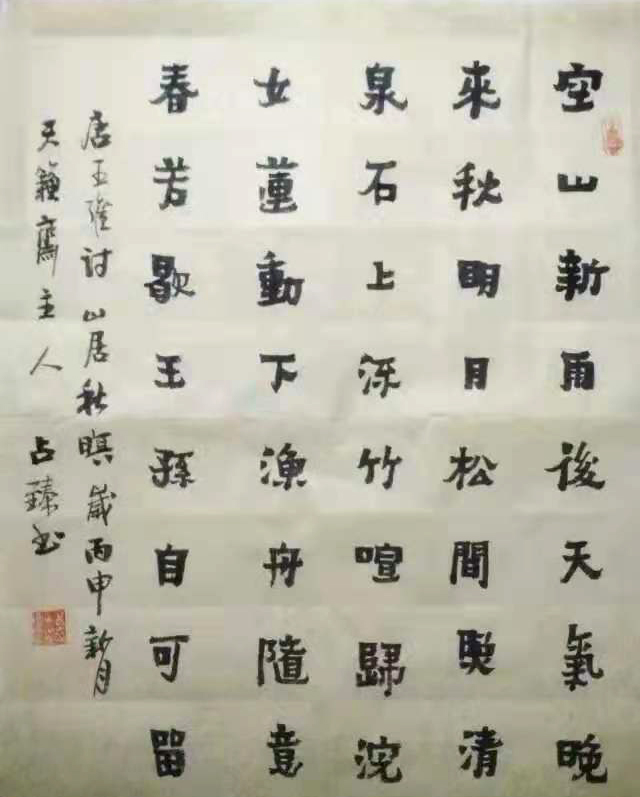 空山新雨後天氣晚
來秋明月松間照清
泉石上流竹喧歸浣
女蓮動下漁舟隨意
春芳歇王孫自可留
唐王維詩山居秋暝歲丙申新月
天籟齋主人占臻書